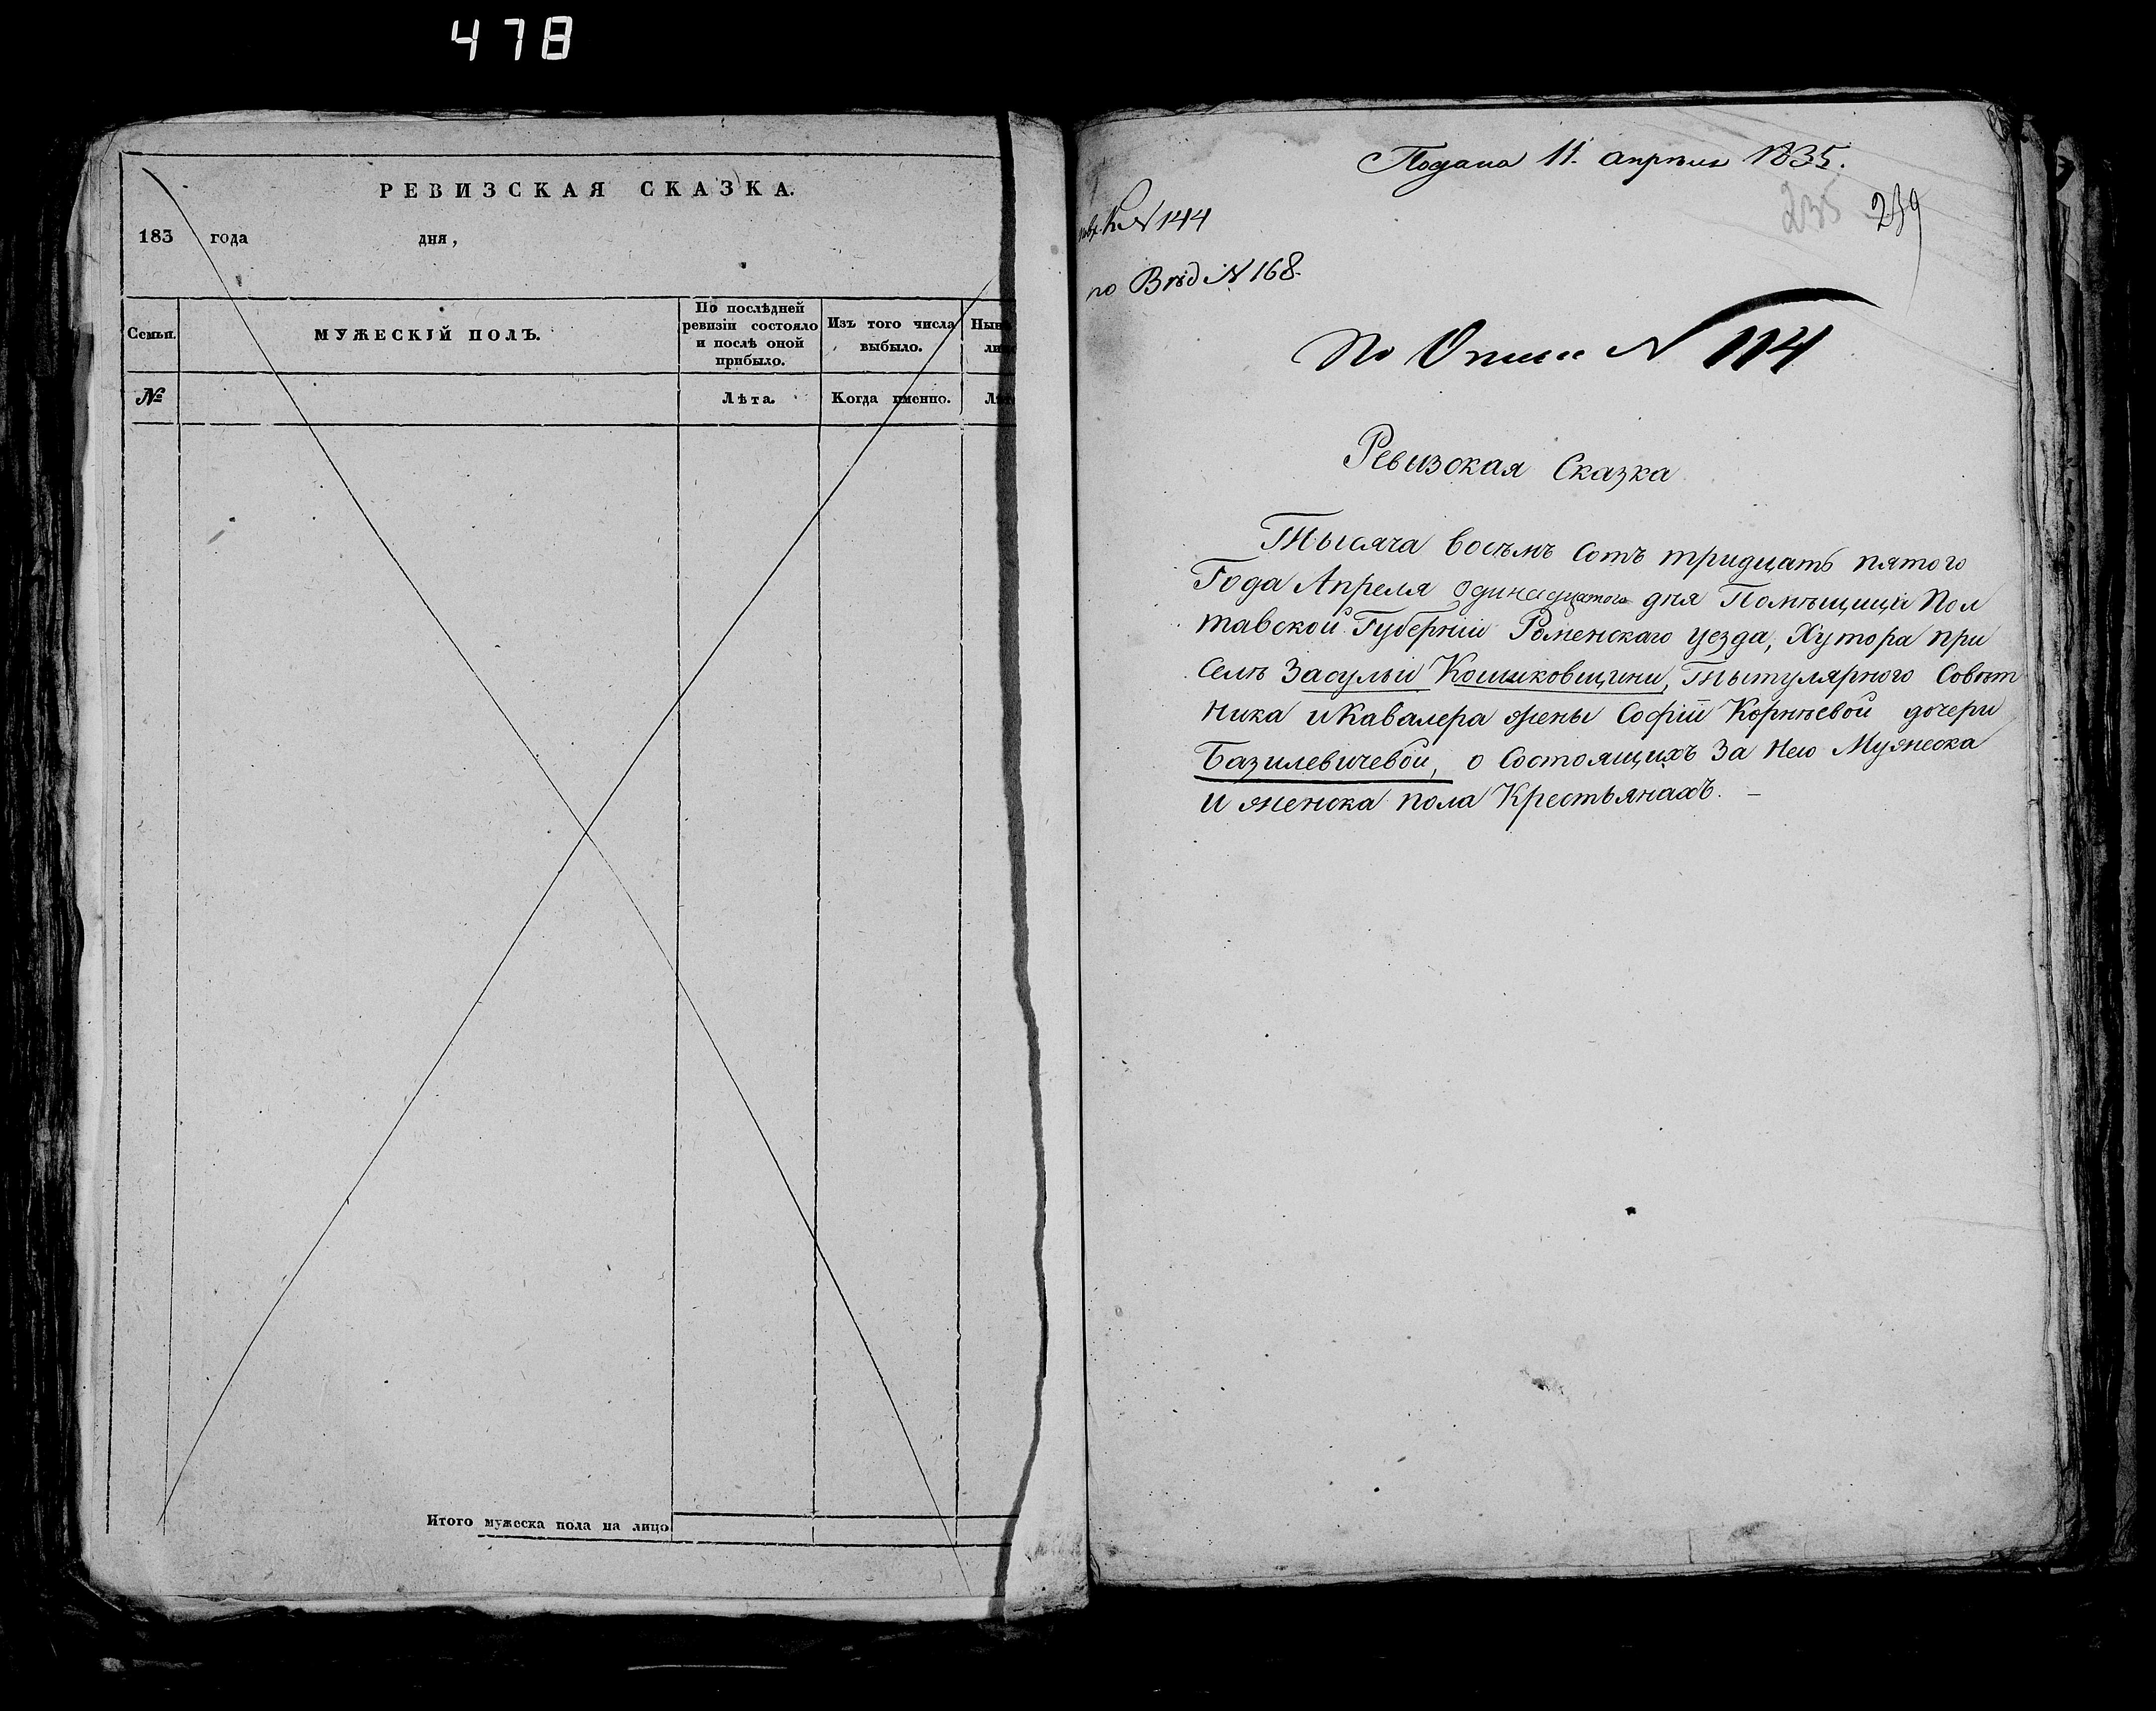 478
РЕВИЗСКАЯ СКАЗКА.
183 года дня,
Семьи.
МУЖЕСКІЙ ПОЛЪ.
По послѣдней
ревизіи состояло
и послѣ оной
прибыло.
Изъ того числа
выбыло.
№
Лѣта.
Когда именно.
Итого мужеска пола на лицо
Подана 11. апрѣля 1835.
235 239
N 144
по Вѣд N 168.
По Описи N 114
Ревизская Сказка
Тысяча восѣмъ Сотъ тридцать пятого
Года Апреля одинадцатого дня Помѣщици Пол
тавской Губерніи Роменскаго уезда, Хутора при
Селѣ Засульи Кошиковщини, Тытулярного Совѣт
ника и Кавалера жены Софіи Корнѣевой дочери
Базилевичевой, о Состоящихъ За Нею Мужеска
и женска пола Крестьянахъ. –